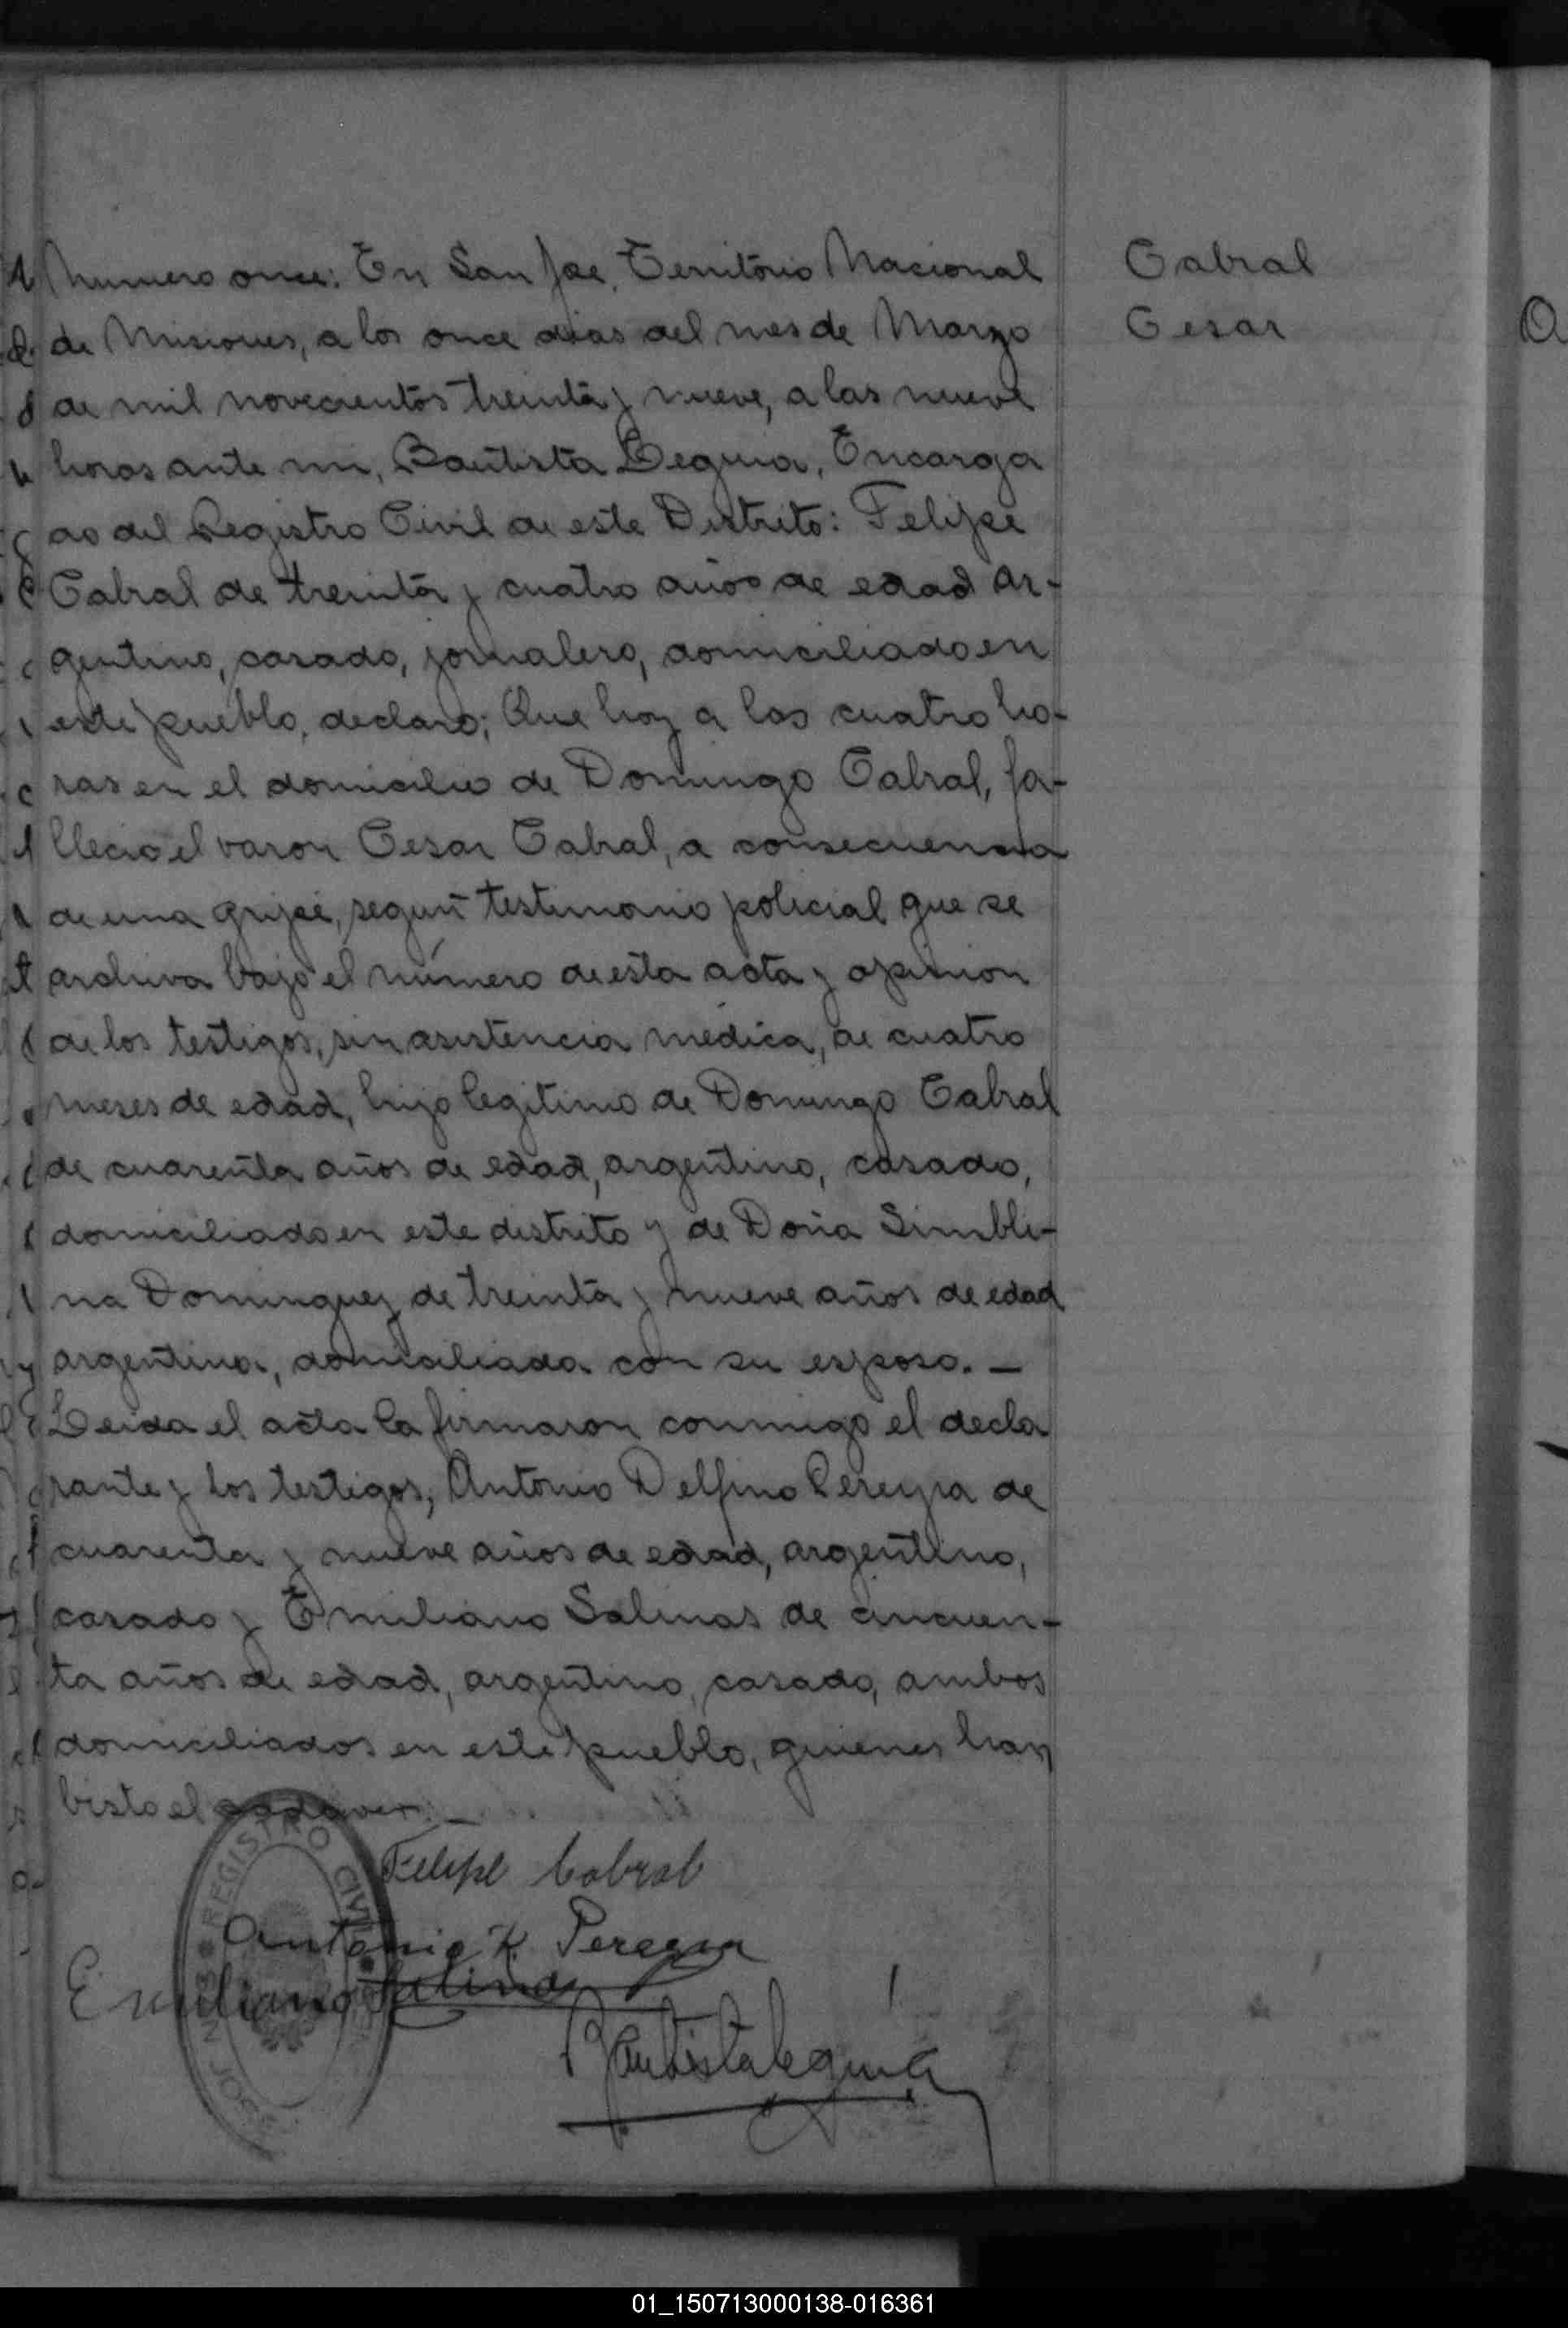 Numero once: En San Jose, Territorio Nacional
de Misiones, a los once dias del mes de Marzo
de mil novecientos treinta y nueve, a las nueve
horas ante mi, Bautista Leguia, Encarga
do del Registro Civil de este Distrito: Felipe
Cabral de treinta y cuatro años de edad ar-
gentino, casado, jornalero, domiciliado en
este pueblo, declaro; Que hoy a las cuatro ho-
ras en el domicilio de Domingo Cabral, fa-
llecio el varon Cesar Cabral, a consecuencia
de una gripe, segun testimonio policial que se
archiva bajo el número de esta acta y opinion
de los testigos, sin asistencia médica, de cuatro
meses de edad, hijo legitimo de Domingo Cabral
de cuarenta años de edad, argentino, casado,
domiciliado en este distrito y de Doña Simbli-
na Dominguez de treinta y nueve años de edad
argentina, domiciliada con su esposo. —
Leida el acta la firmaron conmigo el decla
rante y los testigos, Antonio Delfino Pereyra de
cuarenta y nueve años de edad, argentino,
casado y Emiliano Salinas de cincuen-
ta años de edad, argentino, casado, ambos
domiciliados en este pueblo, quienes han
bisto el cadaver. —
Cabral
Cesar
Felipe Cabral
Antonio Pereyra
Emiliano Salinas
Bautista Leguia
REGISTRO CIVIL
SAN JOSE
01_150713000138-016361